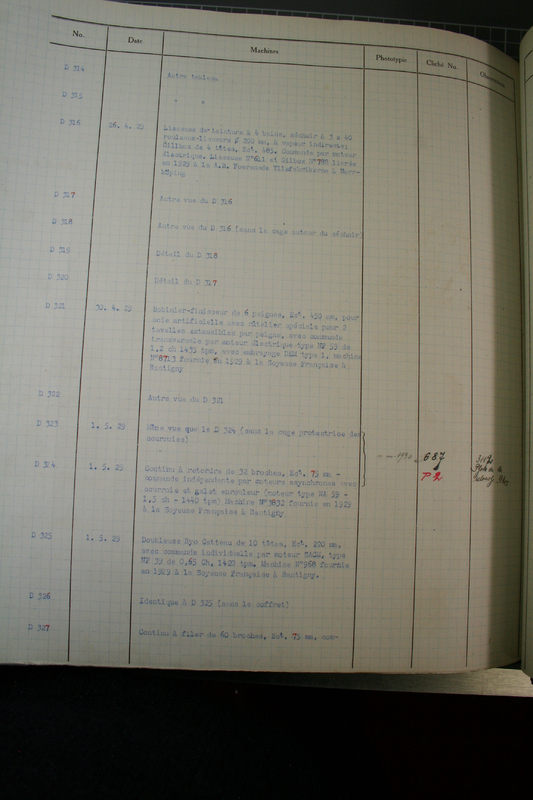 No. Date Machines Phototypie Cliché No.
D 314 Autre tableau
D 315 " "
D 316 26. 4. 29 Lisseuse de teinture à 4 bains, séchoir à 3 x 40
rouleaux-lisseurs ∅ 200 mm, à vapeur indirecte;
Gillbox de 4 têtes, Ect. 485. Commande par moteur
électrique. Lisseuse N°611 et Gillbox N°798 livrés
en 1929 à la A.B. Foerenade Yllefabrikerna à Norr-
köping
D 317 Autre vue du D 316
D 318 Autre vue du D 316 (sans la cage autour du séchoir)
D 319 Détail du D 318
D 320 Détail du D 317
D 321 30. 4. 29 Bobinier-finisseur de 6 peignes, Ect. 450 mm, pour
soie artificielle avec râtelier spéciale pour 2
tavelles extensibles par peigne, avec commande
transversale par moteur électrique type NF 59 de
1,2 ch 1435 tpm, avec embrayage type 1, machine
N°8713 fournie en 1929 à la Soyeuse Française à
Hautigny
D 322 Autre vue du D 321
D 323 1. 5. 29 Même vue que le D 324 (sans la cage protectrice des
courroies)
1930 687
D 324 1. 5. 29 Continu à retordre de 32 broches, Ect. 75 mm -
commande indépendante par moteurs asynchrones avec
courroie et galet enrouleur (moteur type NA 59 -
1.5 ch - 1440 tpm) Machine N°3832 fournie en 1929
à la Soyeuse Française à Hautigny
P 2
D 325 1. 5. 29 Doubleuse Ryo Catteau de 10 têtes, Ect. 220 mm,
avec commande individuelle par moteur SACM, type
NF 39 de 0,65 Ch, 1420 tpm. Machine N°968 fournie
en 1929 à la Soyeuse Française à Hautigny.
D 326 Identique à D 325 (sans le coffret)
D 327 Continu à filer de 60 broches, Ect. 75 mm, com-